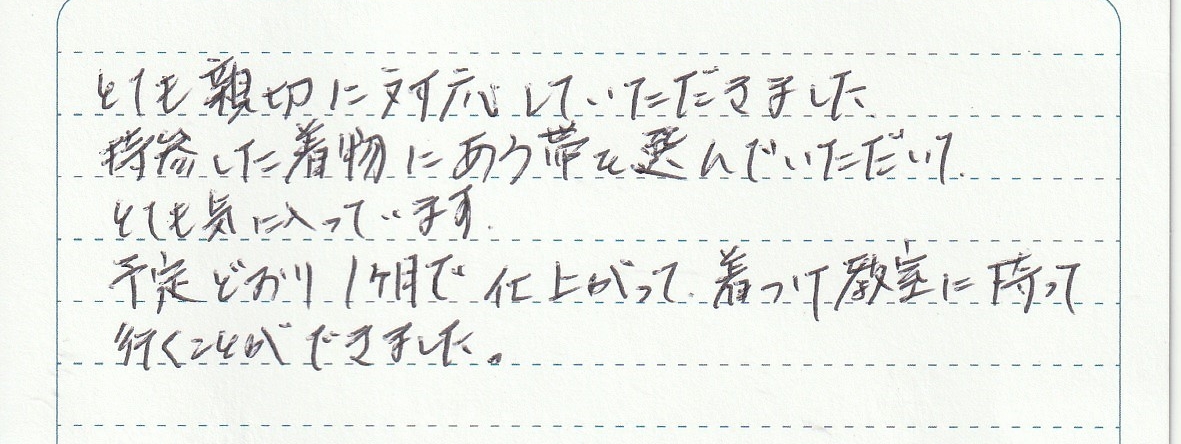 とても親切に対応していただきました
持参した着物にあう帯を選んでいただいて、
とても気に入っています。
予定どおり1ヶ月で仕上がって、着つけ教室に持って
行くことができました。